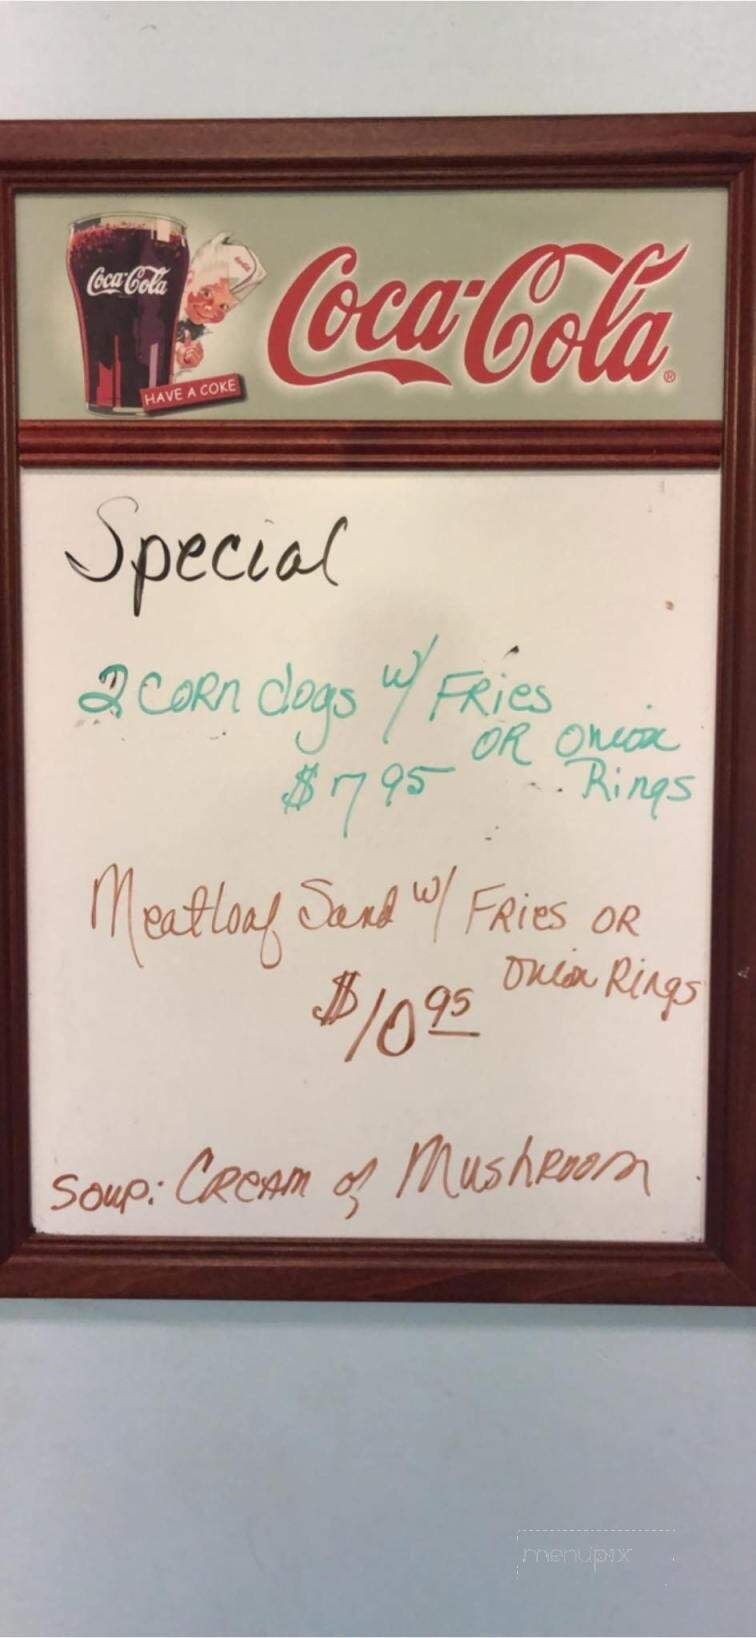 Coca-Cola
HAVE A COKE
Coca-Cola®
Special
2 CORN dogs w/ FRies
OR Onion
$7 95 Rings
Meatloaf Sand w/ FRies OR
Onion Rings
$10 95
Soup: CReam of MushRoom
menupix